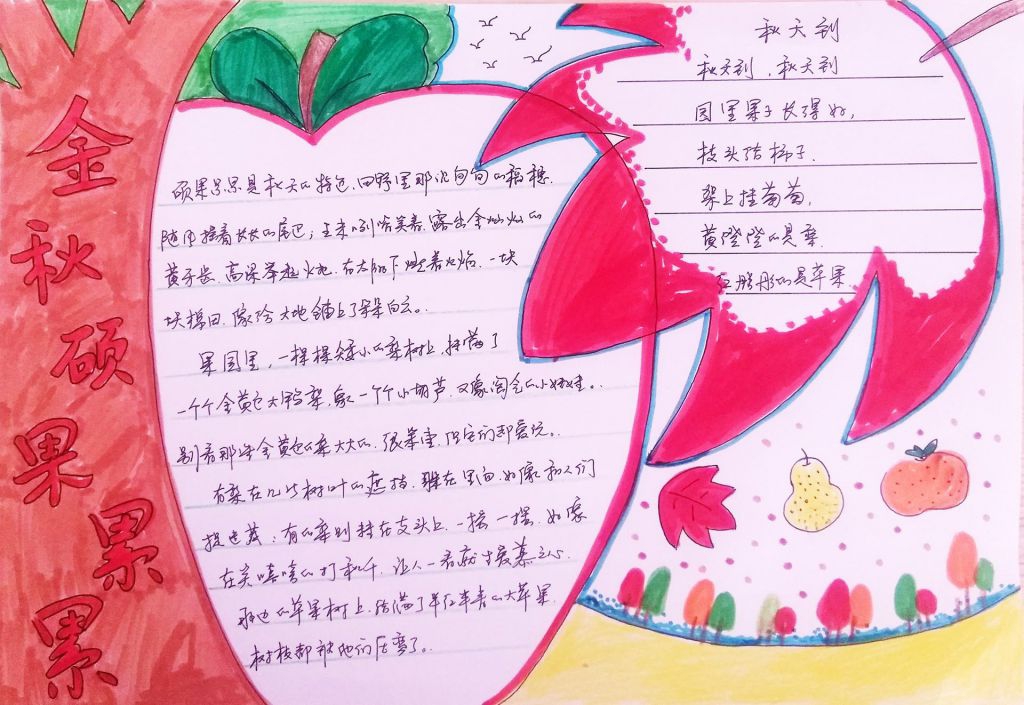 金秋硕果累累
硕果累累是秋天的特色.田野里那沉甸甸的稻穗.
随风摇着长长的尾巴；玉米咧嘴笑着.露出金灿灿的
黄牙齿.高粱举起火把.在太阳下燃着火焰.一块
块棉田.像给大地铺上了朵朵白云。.
果园里，一棵棵矮小的梨树上.挂满了
一个个金黄色大鸭梨.象一个个小葫芦.又像淘气的小娃娃。.
别看那些金黄色的梨大大的.
有梨在几片树叶的遮挡.躲在里面.好像和人们
捉迷藏；有的梨则挂在支头上.一摇一摆.好像
在笑嘻嘻的打秋千.让人一看就生爱慕之心.
的苹果树上.结满了半红半青的大苹果.
树枝都被他们压弯了。.
秋天到
秋天到.秋天到
园里果子长得好，
枝头结柿子.
架上挂葡萄，
黄澄澄的是梨.
红彤彤的是苹果.